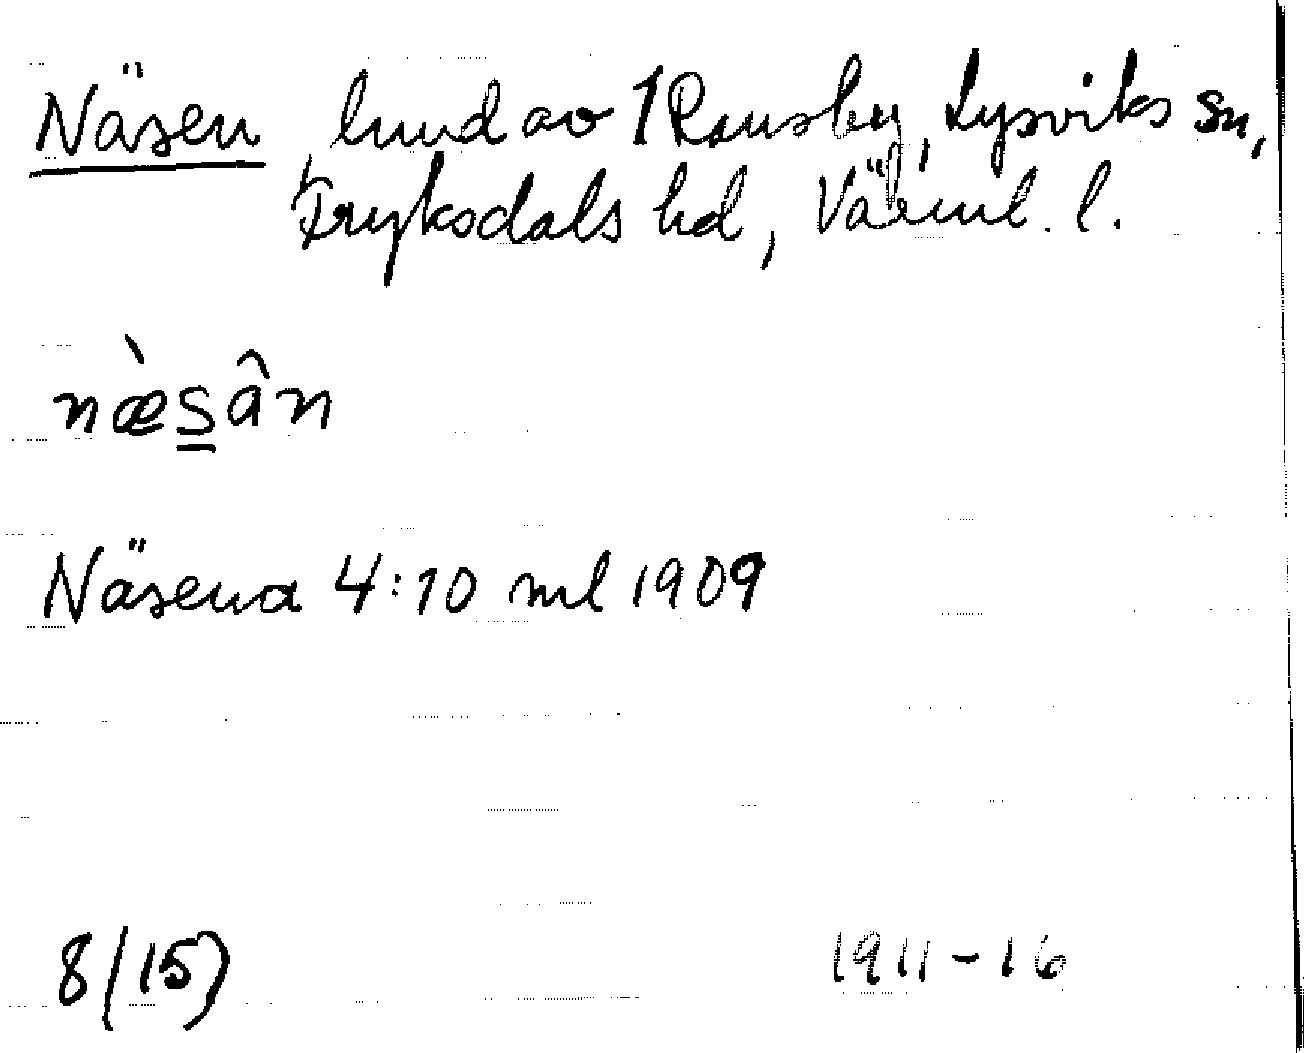 Näsen hmd av 1 Ransby, Lysviks sn,
Fryksdals hd, Värml. l.
næ̀s̲ân
Näsena 4:10 ml 1909
8(15)
1911-16